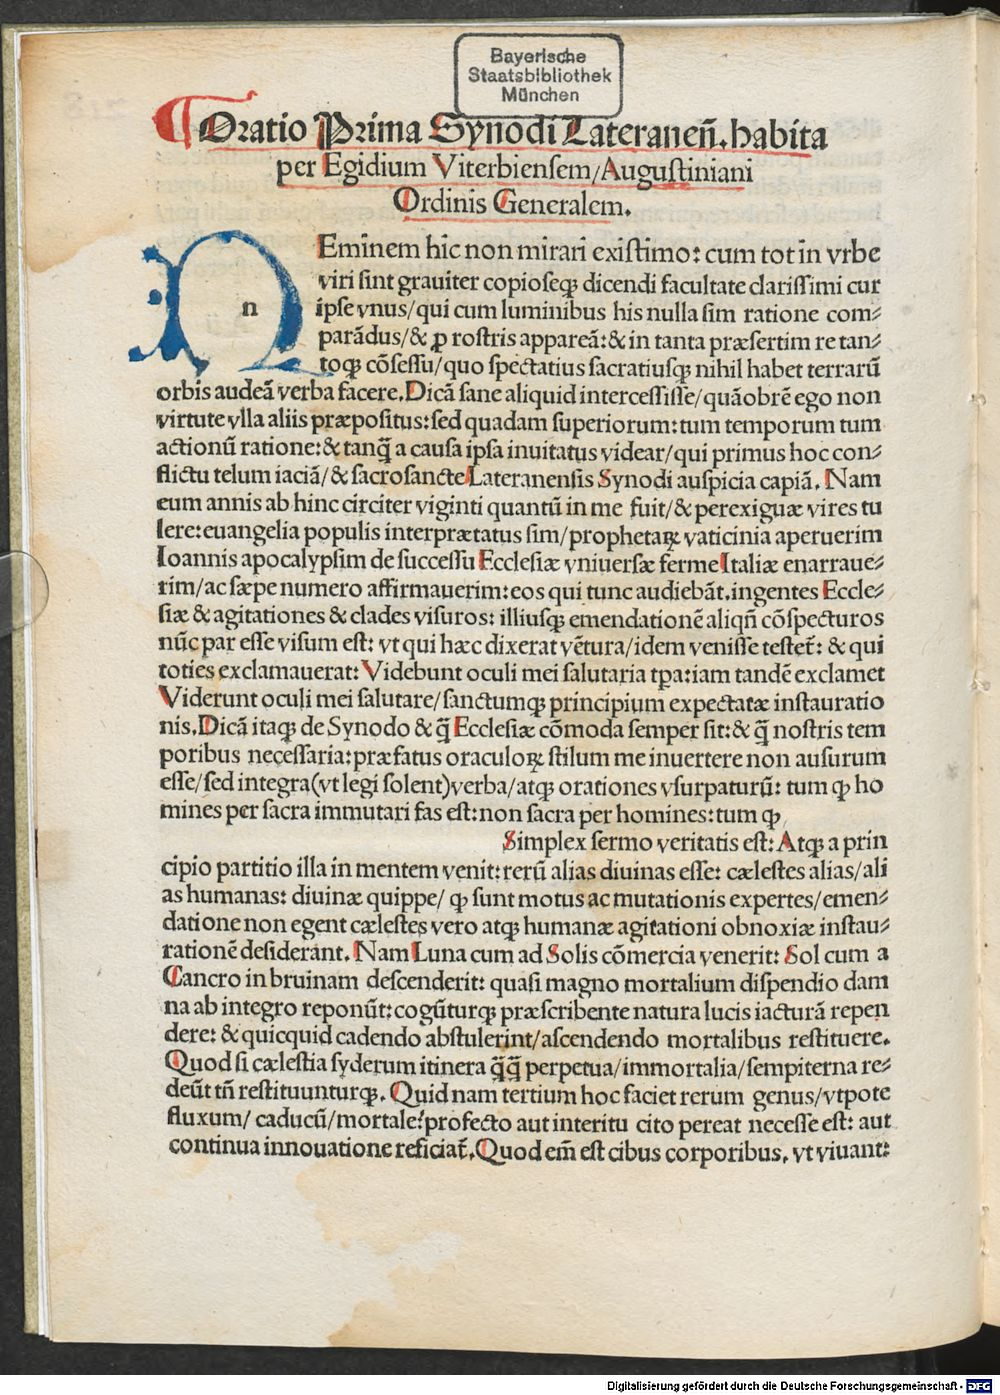 Bayerische
Staatsbibliothek
München
Oratio Prima Synodi Lateraneñ. habita
per Egidium Viterbiensem/Augustiniani
Ordinis Generalem.
n
Eminem hic non mirari existimo: cum tot in vrbe
viri sint grauiter copioseqꝫ dicendi facultate clarissimi cur
ipse vnus/qui cum luminibus his nulla sim ratione com⸗
parãdus/& ꝓ rostris appareã: & in tanta præsertim re tan⸗
toqꝫ cõsessu/quo spectatius sacratiusqꝫ nihil habet terrarũ
orbis audeã verba facere. Dicã sane aliquid intercessisse/quãobrẽ ego non
virtute vlla aliis præpositus: sed quadam superiorum: tum temporum tum
actionũ ratione: & tanq̃ a causa ipsa inuitatus videar/qui primus hoc con⸗
flictu telum iaciã/& sacrosancte Lateranensis Synodi auspicia capiã. Nam
eum annis ab hinc circiter viginti quantũ in me fuit/& perexiguæ vires tu
lere: euangelia populis interprætatus sim/prophetaꝝ vaticinia aperuerim
Ioannis apocalypsim de successu Ecclesiæ vniuersæ ferme Italiæ enarraue⸗
rim/ac sæpe numero affirmauerim: eos qui tunc audiebãt. ingentes Eccle⸗
siæ & agitationes & clades visuros: illiusqꝫ emendationẽ aliqñ cõspecturos
nũc par esse visum est: vt qui hæc dixerat vẽtura/idem venisse testet̃: & qui
toties exclamauerat: Videbunt oculi mei salutaria tp̃a: iam tandẽ exclamet
Viderunt oculi mei salutare/sanctumqꝫ principium expectatæ instauratio
nis. Dicã itaqꝫ de Synodo & q̃ Ecclesiæ cõmoda semper sit: & q̃ nostris tem
poribus necessaria: præfatus oraculoꝝ stilum me inuertere non ausurum
esse/sed integra (vt legi solent) verba/atqꝫ orationes vsurpaturũ: tum ꝙ ho
mines per sacra immutari fas est: non sacra per homines: tum ꝙ
Simplex sermo veritatis est: Atqꝫ a prin
cipio partitio illa in mentem venit: rerũ alias diuinas esse: cælestes alias/ali
as humanas: diuinæ quippe/ ꝙ sunt motus ac mutationis expertes/emen⸗
datione non egent cælestes vero atqꝫ humanæ agitationi obnoxiæ instau⸗
rationẽ desiderant. Nam Luna cum ad Solis cõmercia venerit: Sol cum a
Cancro in bruinam descenderit: quasi magno mortalium dispendio dam
na ab integro reponũt: cogũturqꝫ præscribente natura lucis iacturã repen
dere: & quicquid cadendo abstulerint/ascendendo mortalibus restituere.
Quod si cælestia syderum itinera q̃q̃ perpetua/immortalia/sempiterna re⸗
deũt tñ restituunturqꝫ. Quid nam tertium hoc faciet rerum genus/vtpote
fluxum/ caducũ/mortale? profecto aut interitu cito pereat necesse est: aut
continua innouatione reficiat̃. Quod em̃ est cibus corporibus. vt viuant:
Digitalisierung gefördert durch die Deutsche Forschungsgemeinschaft - DFG